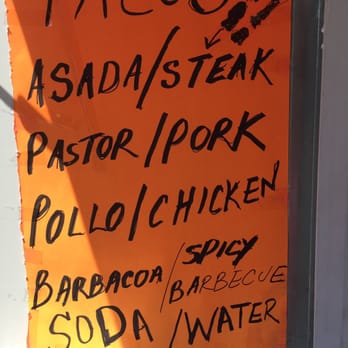 TACOS
ASADA/STEAK
PASTOR/PORK
POLLO/CHICKEN
BARBACOA/SPICY BARBECUE
SODA/WATER